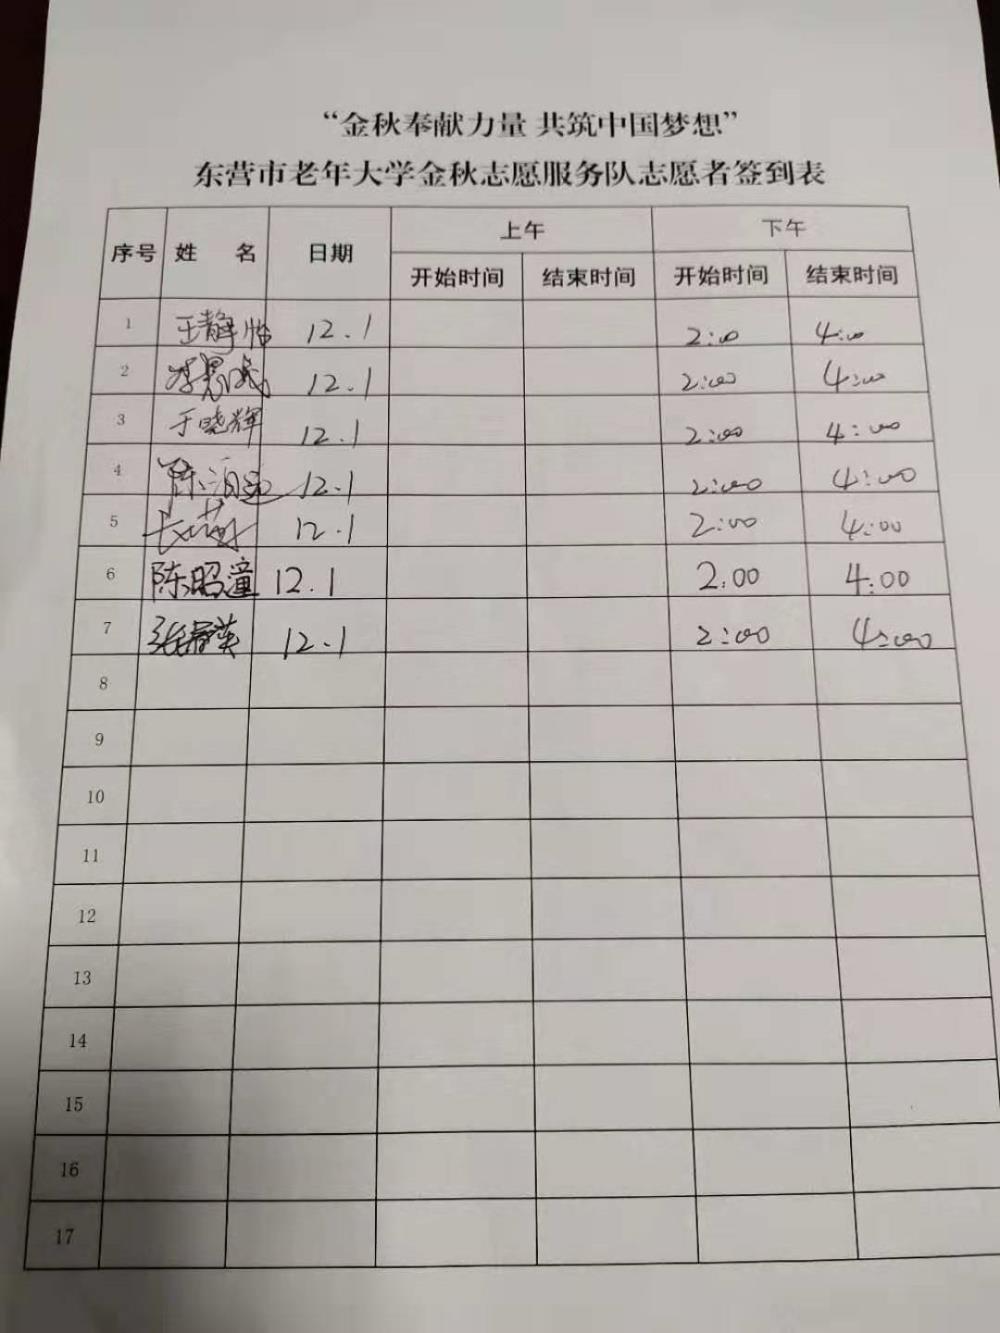 “金秋奉献力量 共筑中国梦想”
东营市老年大学金秋志愿服务队志愿者签到表
序号 姓 名 日期 上午 下午
开始时间 结束时间 开始时间 结束时间
1 王静怡 12.1 2:00 4:00
2 12.1 2:00 4:00
3 于晓辉 12.1 2:00 4:00
4 陈 12.1 2:00 4:00
5 12.1 2:00 4:00
6 陈昭潼 12.1 2.00 4:00
7 张春英 12.1 2:00 4:00
8
9
10
11
12
13
14
15
16
17